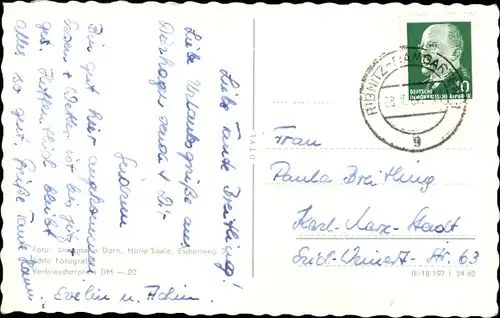 Liebe Tante Breitling!
Liebe Urlaubsgrüße aus
Dierhagen sendet Dir
Bin gut hier angekommen
Essen + Wetter ist bis jetzt
gut. Hoffentlich bleibt
alles so gut. Grüße Tante
Evelin u. Achim.
Foto: Dorn, Halle Saale, Eselnweg 3
Echte Fotografie
Verbraucherpreis DM —.20
DEUTSCHE
DEMOKRATISCHE REPUBLIK
10
RIBNITZ-DAMGARTEN
g
Frau
Paula Breitling
Karl-Marx-Stadt
Erich-Weinert-Str. 63
III/18/197 L 24/62